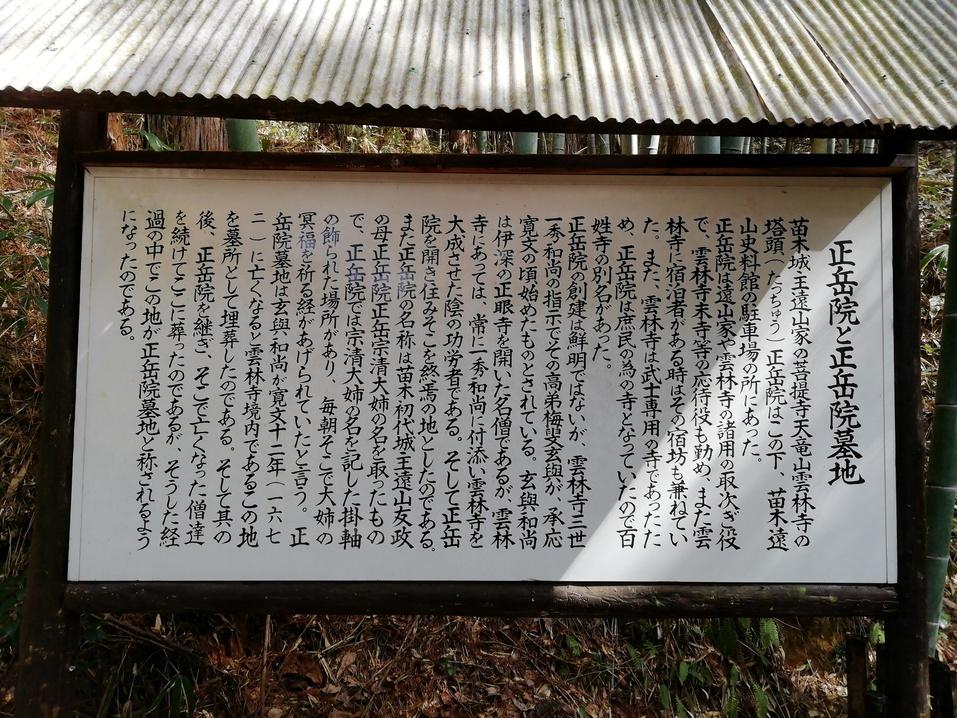 正岳院と正岳院墓地
苗木城主遠山家の菩提寺天竜山雲林寺の
塔頭（たっちゅう）正岳院はこの下、苗木遠
山史料館の駐車場の所にあった。
正岳院は遠山家や雲林寺の諸用の取次ぎ役
で、雲林寺末寺等の応待役も勤め、また雲
林寺に宿泊者がある時はその宿坊も兼ねてい
た。また、雲林寺は武士専用の寺であったた
め、正岳院は庶民の為の寺となっていたので百
姓寺の別名があった。
正岳院の創建は鮮明ではないが、雲林寺三世
一秀和尚の指示でその高弟梅嬰玄與が、承応
寛文の頃始めたものとされている。玄與和尚
は伊深の正眼寺を開いた名僧であるが、雲林
寺にあっては、常に一秀和尚に付添い雲林寺を
大成させた陰の功労者である。そして正岳
院を開き住みそこを終焉の地としたのである。
また正岳院の名称は苗木初代城主遠山友政
の母正岳院正岳宗清大姉の名を取ったもの
で、正岳院では宗清大姉の名を記した掛軸
の飾られた場所があり、毎朝そこで大姉の
冥福を祈る経があげられていたと言う。正
岳院墓地は玄與和尚が寛文十二年（一六七
二）に亡くなると雲林寺境内であるこの地
を墓所として埋葬したのである。そして其の
後、正岳院を継ぎ、そこで亡くなった僧達
を続けてここに葬ったのであるが、そうした経
過の中でこの地が正岳院墓地と称されるよう
になったのである。